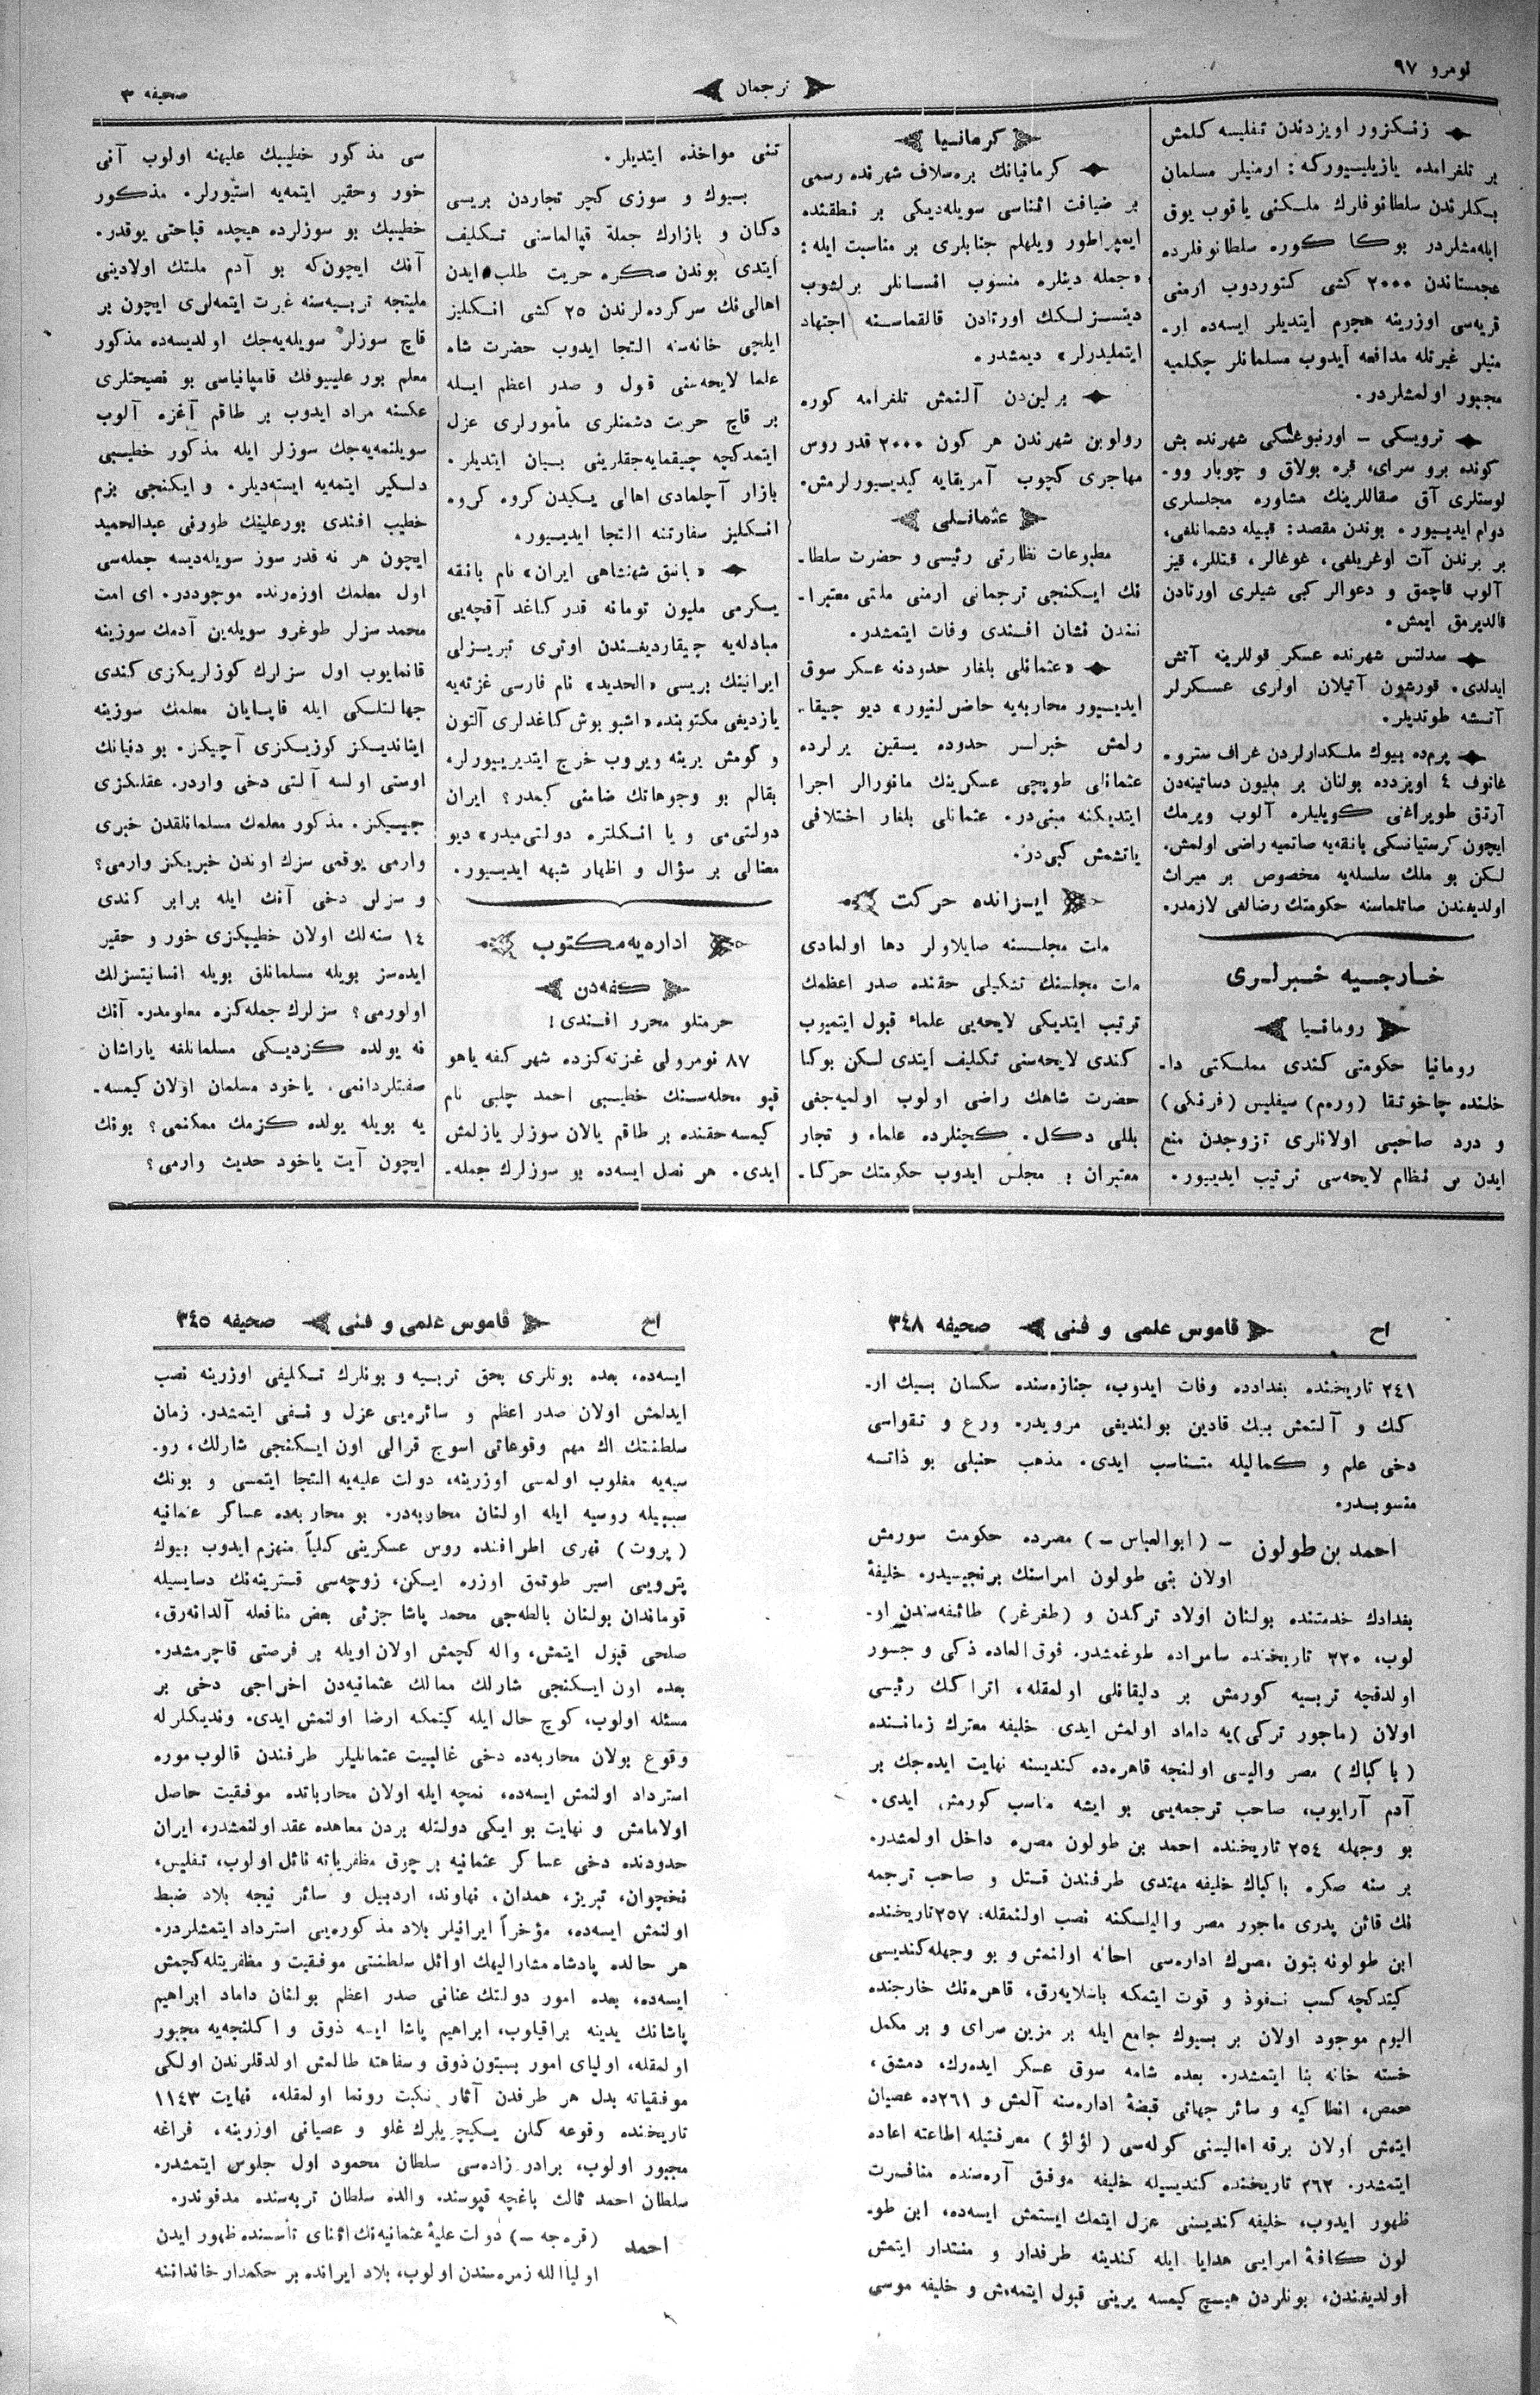 نومرو ٩٧
ترجمان
صحیفه ٣
زنکزور اویزدندن تفلیسه کلمش
بر تلغرامده یازیلیییورکه: ارمنیلر مسلمان
بکلرندن سلطانوفلرك ملکنی یاقوب یوق
ایله‌مشلردر بوکا کوره سلطانوفلرده
عجمستاندن ٢٠٠٠ کشی کتوردوب ارمنی
قریه‌سی اوزرینه هجرم ایتدیلر ایسه‌ده ار-
منیلر غیرتله مدافعه ایدوب مسلمانلر چکلمیه
مجبور اولمشلردر.
ترویسکی – اورنبوغسکی شهرنده بش
کونده برو سرای، قره بولاق و چوبار وو-
لوستلری آق صقاللرینك مشاوره مجلسلری
دوام ایدییور. بوندن مقصد: قبیله دشمانلغی،
بر برندن آت اوغریلغی، غوغالر، قتللر، قیز
آلوب قاچمق و دعوالر کبی شیلری اورتادن
قالدیرمق ایمش.
سدلتس شهرنده عسکر قوللرینه آتش
ایدلدی. قورشون آتیلان اولری عسکرلر
آتشه طوتدیلر.
پرم‌ده بیوك ملکدارلردن غراف سترو-
غانوف ٤ اویزدده بولنان بر ملیون دساتینه‌دن
آرتق طوپراغنی کویلیلره آلوب ویرمك
ایچون کرستیانسکی بانقه‌یه صاتمیه راضی اولمش.
لکن بو ملك سلسله‌یه مخصوص بر میراث
اولدیغندن صاتلماسنه حکومتك رضالغی لازمدر.
خارجیه خبرلری
رومانیا
رومانیا حکومتی کندی مملکتی دا-
خلنده چاخوتقا (ورم) سیفلیس (فرنکی)
و درد صاحبی اولانلری تزوجدن منع
ایدن بر نظام لایحه‌سی ترتیب ایدییور.
کرمانیا
کرمانیانك بره‌سلاف شهرنده رسمی
بر ضیافت اثناسی سویله‌دیکی بر نطقنده
ایمپراطور ویلهلم جنابلری بر مناسبت ایله:
«جمله دینلره منسوب انسانلر برلشوب
دینسزلکك اورتادن قالقماسنه اجتهاد
ایتملیدرلر» دیمشدر.
برلین‌دن آلنمش تلغرامه کوره
رولوبن شهرندن هر کون ٢٠٠٠ قدر روس
مهاجری کچوب آمریقایه کیدییورلرمش.
عثمانلی
مطبوعات نظارتی رئیسی و حضرت سلطا-
نك ایکنجی ترجمانی ارمنی ملتی معتبرا-
نندن نشان افندی وفات ایتمشدر.
«عثمانلی بلغار حدودنه عسکر سوق
ایدییور محاربه‌یه حاضرلنیور» دیو چیقا-
رلمش خبرلر حدوده یقین یرلرده
عثمانلی طوپچی عسکرینك مانورالر اجرا
ایتدیکنه مبنی‌در. عثمانلی بلغار اختلافی
یاتشمش کبی‌در.
ایرانده حرکت
ملت مجلسنه صایلاولر دها اولمادی
ملت مجلسنك تشکیلی حقنده صدر اعظمك
ترتیب ایتدیکی لایحه‌یی علماء قبول ایتمیوب
کندی لایحه‌سنی تکلیف ایتدی لکن بوکا
حضرت شاهك راضی اولوب اولمیه‌جغی
بللی دکل. کچنلرده علماء و تجار
معتبران بر مجلس ایدوب حکومتك حرکا-
تنی مواخذه ایتدیلر.
بیوك و سوزی کچر تجاردن بریسی
دکان و بازارك جملة قپالماسنی تکلیف
ایتدی بوندن صکره حریت طلب ایدن
اهالی‌نك سرکرده‌لرندن ٢٥ کشی انکلیز
ایلچی خانه‌سنه التجا ایدوب حضرت شاه
علما لایحه‌سنی قبول و صدر اعظم ایله
بر قاچ حریت دشمنلری مأمورلری عزل
ایتمدکچه چیقمایه‌جقلرینی بیان ایتدیلر.
بازار آچلمادی اهالی یکیدن کروه کروه
انکلیز سفارتنه التجا ایدییور.
«بانق شهنشاهی ایران» نام بانقه
یکرمی ملیون تومانه قدر کاغد آقچه‌یی
مبادله‌یه چیقاردیغندن اوتری تبریزلی
ایرانینك بریسی «الحدید» نام فارسی غزته‌یه
یازدیغی مکتوبنده «اشبو بوش کاغدلری آلتون
و کومش یرینه ویروب خرج ایتدیرییورلر،
بقالم بو وجوهاتك ضامنی کیمدر؟ ایران
دولتی‌می و یا انکلتره دولتی‌میدر» دیو
معنالی بر سؤال و اظهار شبهه ایدییور.
اداره‌یه مکتوب
کفه‌دن
حرمتلو محرر افندی!
٨٧ نومرولی غزته‌کزده شهر کفه یاهو
قپو محله‌سنك خطیبی احمد چلبی نام
کیمسه حقنده بر طاقم یالان سوزلر یازلمش
ایدی. هر نصل ایسه‌ده بو سوزلرك جمله-
سی مذکور خطیبك علیهنه اولوب آنی
خور وحقیر ایتمه‌یه استیورلر. مذکور
خطیبك بو سوزلرده هیچده قباحتی یوقدر.
آنك ایچون‌که بو آدم ملتك اولادینی
ملیتجه تربیه‌سنه غیرت ایتمه‌لری ایچون بر
قاچ سوزلر سویله‌یه‌جك اولدیسه‌ده مذکور
معلم بورعلییوفك قامپانیاسی بو نصیحتلری
عکسنه مراد ایدوب بر طاقم آغزه آلوب
سویلنمه‌یه‌جك سوزلر ایله مذکور خطیبی
دلکیر ایتمه‌یه ایسته‌دیلر. و ایکنجی بزم
خطیب افندی بورعلینك طورنی عبدالحمید
ایچون هر نه قدر سوز سویله‌دیسه جمله‌سی
اول معلمك اوزه‌رنده موجوددر. ای امت
محمد سزلر طوغرو سویله‌ین آدمك سوزینه
قانمایوب اول سزلرك کوزلریکزی کندی
جهالتلکی ایله قاپایان معلمك سوزینه
ایناندیکز کوزیکزی آچیکز. بو دنیانك
اوستی اولسه آلتی دخی واردر. عقلکزی
جییکز. مذکور معلمك مسلمانلقدن خبری
وارمی یوقمی سزك اوندن خبریکز وارمی؟
و سزلر دخی آنك ایله برابر کندی
١٤ سنه‌لك اولان خطیبکزی خور و حقیر
ایده‌سز بویله مسلمانلق بویله انسانیتسزلك
اولورمی؟ سزلرك جمله‌کزه معلومدر. آنك
نه یولده کزدیکی مسلمانلغه یاراشان
صفتلردانمی. یاخود مسلمان اولان کیمسه-
یه بویله یولده کزمك ممکنمی؟ بونك
ایچون آیت یاخود حدیث وارمی؟
اح
قاموس علمی و فنی
صحیفه ٣٤٨
٢٤١ تاریخنده بغدادده وفات ایدوب، جنازه‌سنده سکسان بیك ار-
کك و آلتمش بیك قادین بولندیغی مرویدر. ورع و تقواسی
دخی علم و کمالیله متناسب ایدی. مذهب حنبلی بو ذاته
منسوبدر.
احمد بن طولون – (ابوالعباس –) مصرده حکومت سورمش
اولان بنی طولون امراسنك برنجیسیدر. خلیفهٔ
بغدادك خدمتنده بولنان اولاد ترکدن و (طغرغر) طائفه‌سندن او-
لوب، ٢٢٠ تاریخنده سامراده طوغمشدر. فوق‌العاده ذکی و جسور
اولدقچه تربیه کورمش بر دلیقانلی اولمقله، اتراکك رئیسی
اولان (ماجور ترکی) یه داماد اولمش ایدی. خلیفه معتزك زماننده
(باکباك) مصر والیسی اولنجه قاهره‌ده کندیسنه نهایت ایده‌جك بر
آدم آرایوب، صاحب ترجمه‌یی بو ایشه مناسب کورمش ایدی.
بو وجهله ٢٥٤ تاریخنده احمد بن طولون مصره داخل اولمشدر.
بر سنه صکره باکباك خلیفه مهتدی طرفندن قتل و صاحب ترجمه
نك قائن پدری ماجور مصر والیلکنه نصب اولنمقله، ٢٥٧ تاریخنده
ابن طولونه بتون مصرك اداره‌سی احاله اولنمش و بو وجهله کندیسی
کیتدکچه کسب نفوذ و قوت ایتمکه باشلایه‌رق، قاهره‌نك خارجنده
الیوم موجود اولان بر بیوك جامع ایله بر مزین سرای و بر مکمل
خسته خانه بنا ایتمشدر. بعده شامه سوق عسکر ایده‌رك، دمشق،
حمص، انطاکیه و سائر جهاتی قبضهٔ اداره‌سنه آلمش و ٢٦١ده عصیان
ایتمش اولان برقه اهالیسنی کوله‌سی (لؤلؤ) معرفتیله اطاعته اعاده
ایتمشدر. ٢٦٢ تاریخنده کندیسیله خلیفه موفق آره‌سنده منافرت
ظهور ایدوب، خلیفه کندیسنی عزل ایتمك ایستمش ایسه‌ده، ابن طو-
لون کافهٔ امرایی هدایا ایله کندینه طرفدار و منتدار ایتمش
اولدیغندن، بونلردن هیچ کیمسه یرینی قبول ایتمه‌مش و خلیفه موسی
اح
قاموس علمی و فنی
صحیفه ٣٤٥
ایسه‌ده، بعده بونلری بحق تربیه و بونلرك تکلیفی اوزرینه نصب
ایدلمش اولان صدر اعظم و سائره‌یی عزل و نفی ایتمشدر. زمان
سلطنتك اك مهم وقوعاتی اسوج قرالی اون ایکنجی شارلك، رو-
سیه‌یه مغلوب اولمسی اوزرینه، دولت علیه‌یه التجا ایتمسی و بونك
سببیله روسیه ایله اولنان محاربه‌در. بو محاربه‌ده عساکر عثمانیه
(پروت) نهری اطرافنده روس عسکرینی کلیاً منهزم ایدوب بیوك
پترویی اسیر طوتمق اوزره ایکن، زوجه‌سی قترینه‌نك دسایسیله
قوماندان بولنان بالطه‌جی محمد پاشا جزئی بعض منافعله آلدانه‌رق،
صلحی قبول ایتمش، و اله کچمش اولان اویله بر فرصتی قاچرمشدر.
بعده اون ایکنجی شارلك ممالك عثمانیه‌دن اخراجی دخی بر
مسئله اولوب، کوچ حال ایله کیتمکه ارضا اولنمش ایدی. وندیکلرله
وقوع بولان محاربه‌ده دخی غالبیت عثمانلیلر طرفندن قالوب موره
استرداد اولنمش ایسه‌ده، نمچه ایله اولان محارباتده موفقیت حاصل
اولامامش و نهایت بو ایکی دولتله بردن معاهده عقد اولنمشدر، ایران
حدودنده دخی عساکر عثمانیه بر چوق مظفریاته نائل اولوب، تفلیس،
نخچوان، تبریز، همدان، نهاوند، اردبیل و سائر نیجه بلاد ضبط
اولنمش ایسه‌ده، مؤخراً ایرانیلر بلاد مذکوره‌یی استرداد ایتمشلردر.
هر حالده پادشاه مشارالیهك اوائل سلطنتی موفقیت و مظفریتله کچمش
ایسه‌ده، بعده امور دولتك عنانی صدر اعظم بولنان داماد ابراهیم
پاشانك یدینه براقیلوب، ابراهیم پاشا ایسه ذوق و اکلنجه‌یه مجبور
اولمقله، اولیای امور بسبتون ذوق و سفاهته طالمش اولدقلرندن اولکی
موفقیاته بدل هر طرفدن آثار نکبت رونما اولمقله، نهایت ١١٤٣
تاریخنده وقوعه کلن یکیچریلرك غلو و عصیانی اوزرینه، فراغه
مجبور اولوب، برادر زاده‌سی سلطان محمود اول جلوس ایتمشدر.
سلطان احمد ثالث باغچه قپوسنده والده سلطان تربه‌سنده مدفوندر.
احمد (قره‌جه –) دولت علیهٔ عثمانیه‌نك اثنای تأسسنده ظهور ایدن
اولیاالله زمره‌سندن اولوب، بلاد ایرانده بر حکمدار خاندانینه